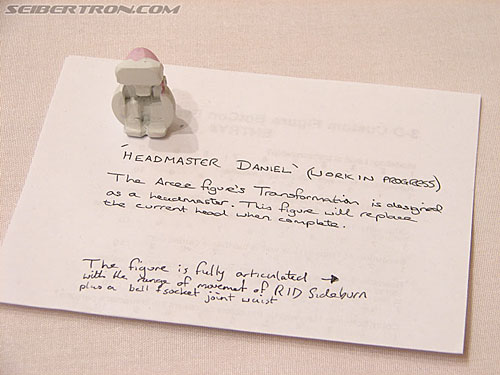 SEIBERTRON.COM
'HEADMASTER DANIEL' (WORK IN PROGRESS)
The Arcee figure's Transformation is designed
as a headmaster. This figure will replace
the current head when complete.
The figure is fully articulated →
with the range of movement of RID Sideburn
plus a ball + socket joint waist